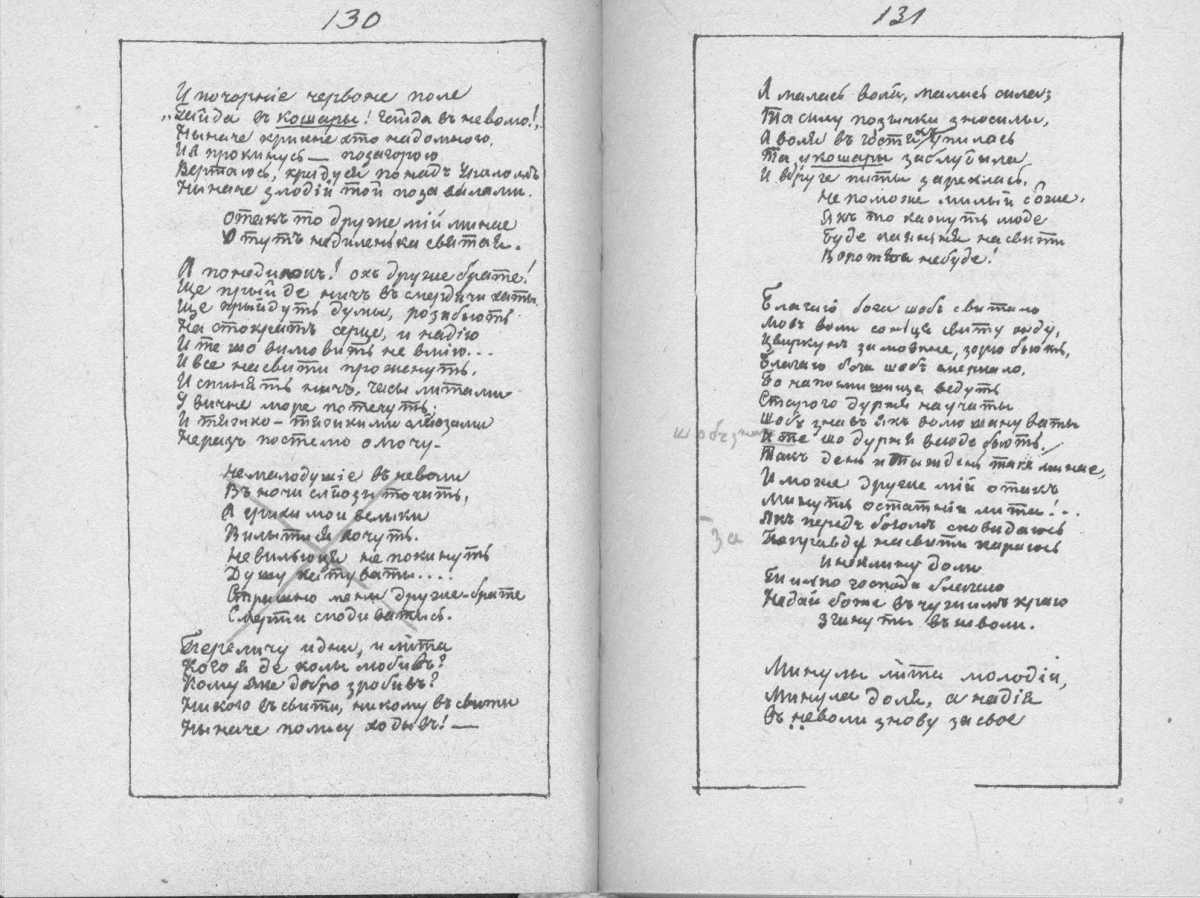 130
И почорніе червоне поле
„Гайда въ кошары! гайда въ неволю!„
Ныначе крикне хто надомною,
И я прокинусь — позагорою
Вертаюсь, крадуся понадъ Ураломъ
Ныначе злодій той поза валами.
Отакъ то друже мій минае
Отутъ недиленька святая.
А понедилокъ! охъ друже брате!
Ще прыйде ничъ въ смердячи хаты
Ще прыйдуть думы, розибьють
На стократъ серце, и надію
И те що вимовить не вмію...
И все насвити проженуть.
И спинять ничъ, часы литами
У вични море потечуть;
И тяжко-тяжкими слёзами
Неразъ постелю омочу-
Немалодушіе въ неволи
Въ ночи слёзи точить,
А грихи мои велыки
Вилытися хочуть.
Невильюця не покинуть
Душу катувати....
Страшно мени друже-брате
Смерти сподиватись.
Переличу и дни, и літа
Кого я де колы любивъ?
Кому яке добро зробивъ?
Никого въ свити, никому въ свити
Ныначе полису ходывъ! —
131
А малась воля, малась сила;
Та силу позычки зносилы,
А воля въ гостяхъ упилась
Та у кошары заблудила
И вдруге питы зареклась.
Не поможе милый боже,
Якъ то кажуть люде
Буде каяння насвити
Вороття небуде!
Благаю бога шобъ свитало
Мовъ воли сонця свиту жду,
Цвиркунъ замовкне, зорю бьють,
Благаю бога шобъ смеркало,
Бо напозишище ведуть
Старого дурня научаты
Шобъ знавъ якъ волю шануваты
шобъ знавъ
И те що дурня всюде бьють.
Такъ день и тыждень такъ минае,
И може друже мій отакъ
Минуть остатній лита!..
Якъ передъ богомъ сповидаюсь
За
Погуавду насвити караюсь
И неклину доли
Тилько господа благаю
Недай боже въ чужимъ краю
Згинуты въ неволи.
Минулы літа молодіи,
Минула доля, а надія
Въ неволи знову за свое